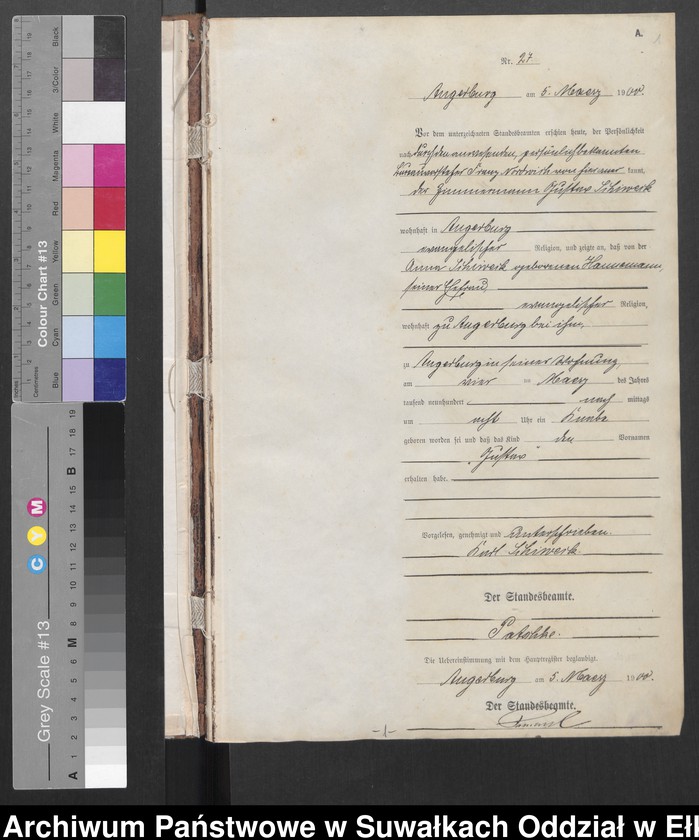 A.
Nr. 27
Angerburg am 5. Maerz 1900.
Vor dem unterzeichneten Standesbeamten erschien heute, der Persönlichkeit
nach durch den anwesenden, persönlich bekannten
Franz Nordwich von hier kannt,
der Zimmermann Gustav Schiweck
wohnhaft in Angerburg
evangelischer Religion, und zeigte an, daß von der
Anna Schiweck geborenen Hannemann,
seiner Ehefrau,
evangelischer Religion,
wohnhaft zu Angerburg bei ihm,
zu Angerburg in seiner Wohnung
am vier ten Maerz des Jahres
tausend neunhundert nach mittags
um acht Uhr ein Knabe
geboren worden sei und daß das Kind den Vornamen
Gustav
erhalten habe.
Vorgelesen, genehmigt und unterschrieben.
Karl Schiweck
Der Standesbeamte.
Die Uebereinstimmung mit dem Hauptregister beglaubigt.
Angerburg am 5. Maerz 1900.
Der Standesbeamte.
-1-
Colour Chart #13
Black
3/Color
White
Magenta
Red
Yellow
Green
Cyan
Blue
Inches
Centimetres
Grey Scale #13
C Y M
A 1 2 3 4 5 6 M 8 9 10 11 12 13 14 15 B 17 18 19
Archiwum Państwowe w Suwałkach Oddział w Eł